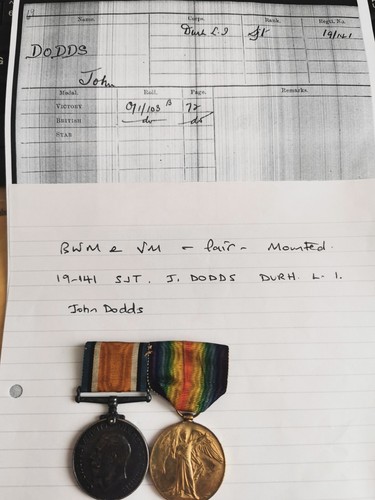 Name. Corps. Rank. Regtl. No.
Durh L.I Sjt 19/141
DODDS
John
Medal. Roll. Page. Remarks.
VICTORY O/1/103 B 72
BRITISH do do
STAR
BWM & VM - fair - Mounted.
19-141 SJT. J. DODDS DURH. L. I.
John Dodds